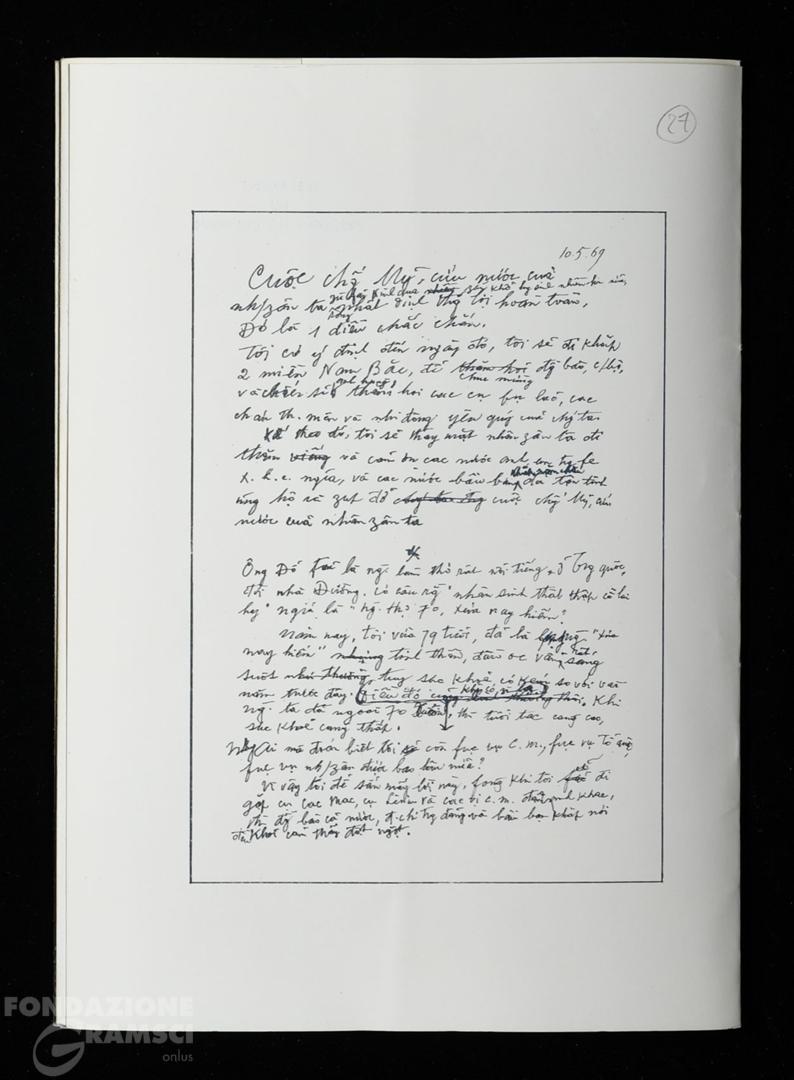 27
10.5.69
Cuộc chố' Mỹ, cứu nước của
dù fải kinh qua zan khổ hy sinh nhiều hơn nữa,
nh/zân ta nhất định thắ' lợi hoàn toàn.
song
Đó là 1 điều chắc chắn.
Tôi có ý định đến ngày đó, tôi sẽ đi khắp
2 miền Nam Bắc, để thăm hỏi đ' bào, c/bộ,
chúc mừng
và chiến sĩ anh hùng, thăm hỏi các cụ fụ lão, các
cháu th. niên và nhi đồng yêu quý của chú' ta.
Kế theo đó, tôi sẽ thay mặt nhân zân ta đi
thăm và cám ơn các nước anh em tr' fe
x. h. c. nghĩa, và các nước bầu bạn khắp năm châu đã tận tình
ủng hộ và júp đỡ cuộc chố' Mỹ, cứu
nước của nhân zân ta

Ông Đỗ Fủ là ng. làm thơ rất nổi tiếng ở Tr' quốc,
đời nhà Đường. Có câu rằ' "nhân sinh thất thập cổ lai
hy" nghĩa là "ng. thọ 70, xưa nay hiếm".
Năm nay, tôi vừa 79 tuổi, đã là hạng ng. "xưa
nay hiếm" nhưng tinh thần, đầu óc vẫn rất sáng
suốt, tuy sức khoẻ có kém so với vài
năm trước đây. Điều đó Khi
ng. ta đã ngoài 70 tuổi, thì tuổi tác càng cao,
sức khoẻ càng thấp.
Nhưng ai mà đoán biết tôi còn fục vụ C.M., fục vụ Tổ quốc,
fục vụ nh/zân được bao lâu nữa?
Vì vậy tôi để sẵn mấy lời này, fòng khi tôi sẽ đi
gặp cụ Các Mác, cụ Lênin và các vị c.m. đàn anh khác,
thì đ' bào cả nước, đ. chí tr' đảng và bầu bạn khắp nơi
đều khỏi cảm thấy đột ngột.
FONDAZIONE
GRAMSCI
onlus